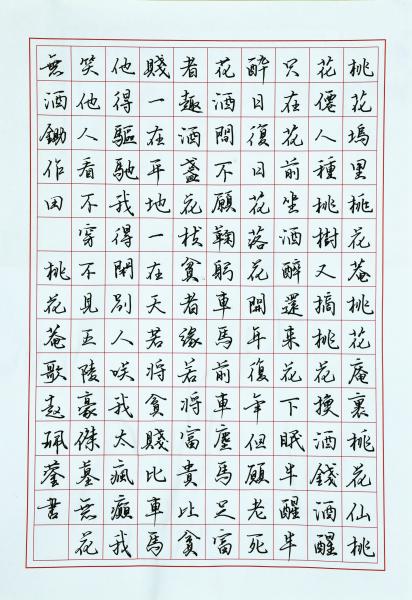 桃花塢里桃花菴桃花庵裏桃花仙桃
花僊人種桃樹又摘桃花換酒錢酒醒
只在花前坐酒醉還來花下眠半醒半
醉日復日花落花開年復年但願老死
花酒間不願鞠躬車馬前車塵馬足富
者趣酒盞花枝貧者緣若將富貴比貧
賤一在平地一在天若將貧賤比車馬
他得驅馳我得閑別人咲我太瘋癲我
笑他人看不穿不見五陵豪傑墓無花
無酒鋤作田 桃花菴歌趙珮蓥書